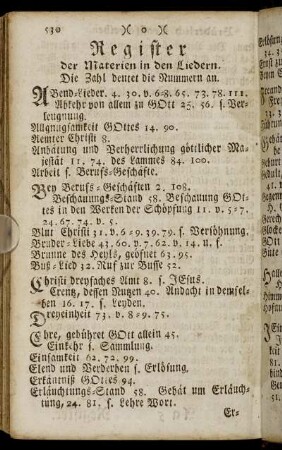 530 )( o )(
Register
der Materien in den Liedern.
Die Zahl deutet die Nummern an.
ABend-Lieder. 4. 30. v. 6-8. 65. 73. 78. 111.
Abkehr von allem zu GOtt 25. 56. s. Ver-
leugnung.
Allgnugsamkeit GOttes 14. 90.
Aemter Christi 8.
Anbätung und Verherrlichung göttlicher Ma-
jestät 11. 74. des Lammes 84. 100.
Arbeit s. Berufs-Geschäfte.
Bey Berufs-Geschäften 2. 108.
Beschauungs-Stand 58. Beschauung GOt-
tes in den Werken der Schöpfung 11. v. 5-7.
24. 67. 74. v. 5.
Blut Christi 31. v. 6-9. 39. 79. s. Versöhnung.
Bruder-Liebe 43. 60. v. 7. 62. v. 14. u. s.
Brunne des Heyls, geöfnet 63. 95.
Buß-Lied 32. Ruf zur Busse 52.
Christi dreyfaches Amt 8. s. JEsus.
Creutz, dessen Nutzen 40. Andacht in demsel-
ben 16. 17. s. Leyden.
Dreyeinheit 73. v. 8-9. 75.
Ehre, gebühret GOtt allein 45.
Einkehr s. Sammlung.
Einsamkeit 62. 72. 99.
Elend und Verderben s. Erlösung.
Erkäntniß GOttes 94.
Erläuchtungs-Stand 58. Gebät um Erläuch-
tung, 24. 81. s. Lehre Wort.
Er-